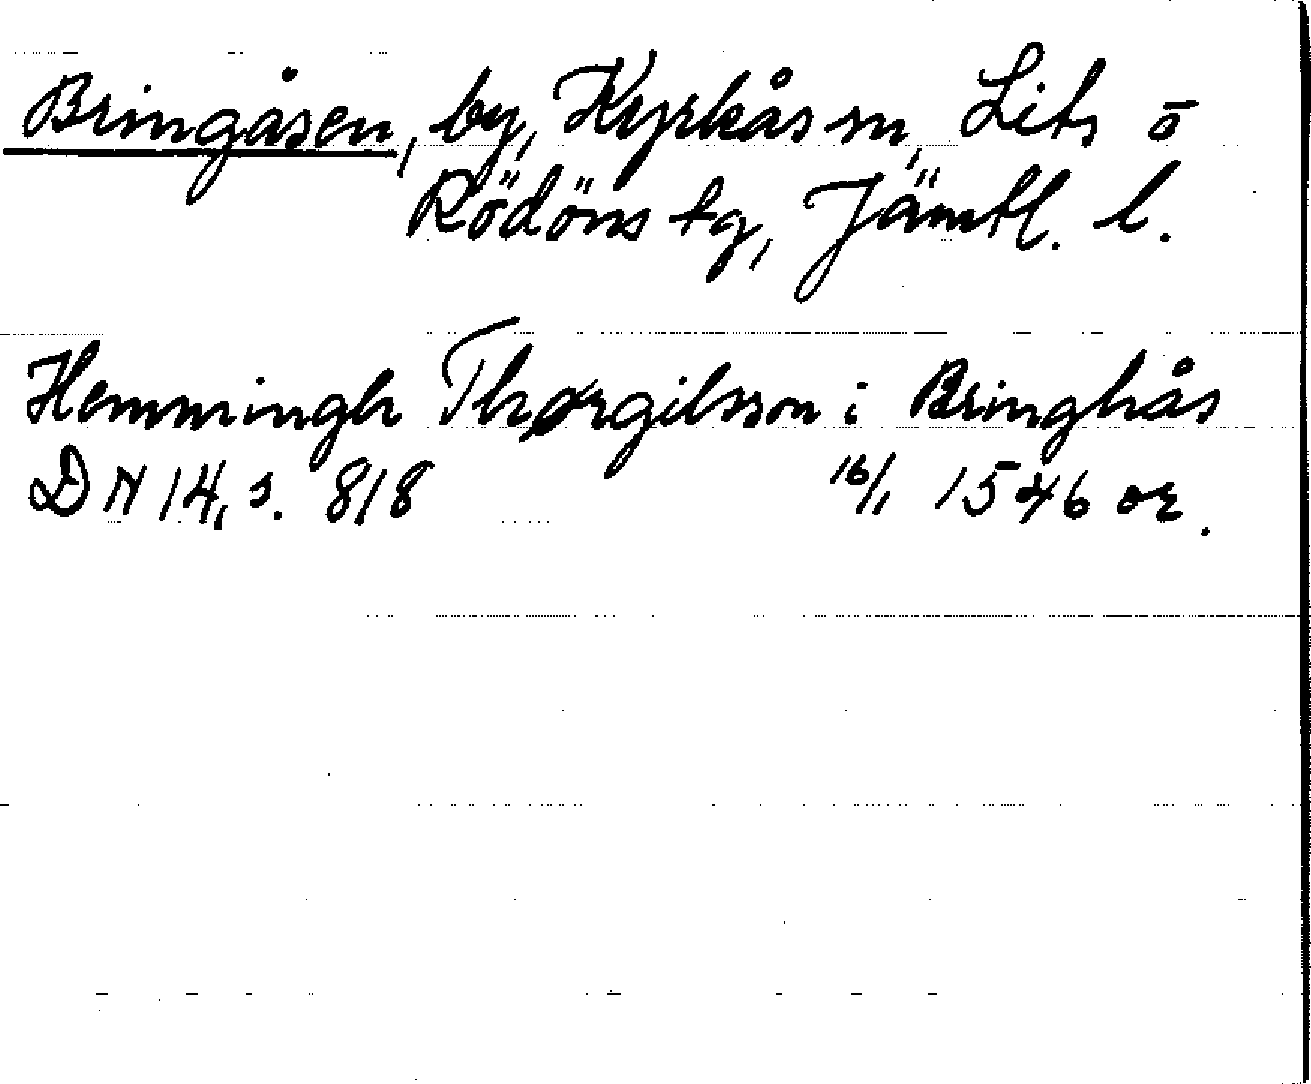 Bringåsen, by, Kyrkås sn, Lits o
Rödöns tg, Jämtl. l.
Hemmingh Thørgilsson i Bringhås
DN 14, s. 818 16/1 1546 or.